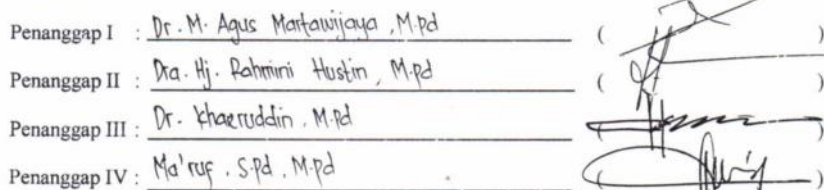 Penanggap I : Dr. M. Agus Martawijaya, M.Pd ( )
Penanggap II : Dra. Hj. Rahmini Hustin, M.Pd ( )
Penanggap III : Dr. Khaeruddin, M.Pd ( )
Penanggap IV : Ma'ruf, S.Pd, M.Pd ( )